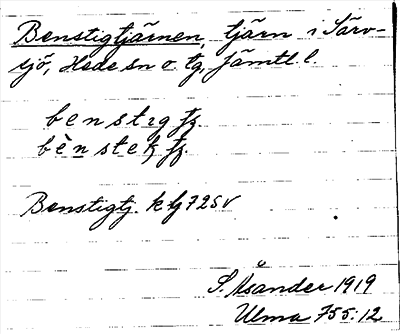 Benstigtjärnen, tjärn i Särv-
sjö, Hede sn o. tg, Jämtl. l.
benstɩg tj.
bènstek tj.
Benstigtj. k bj 72 SV
S. Åsander 1919
Ulma 755:12